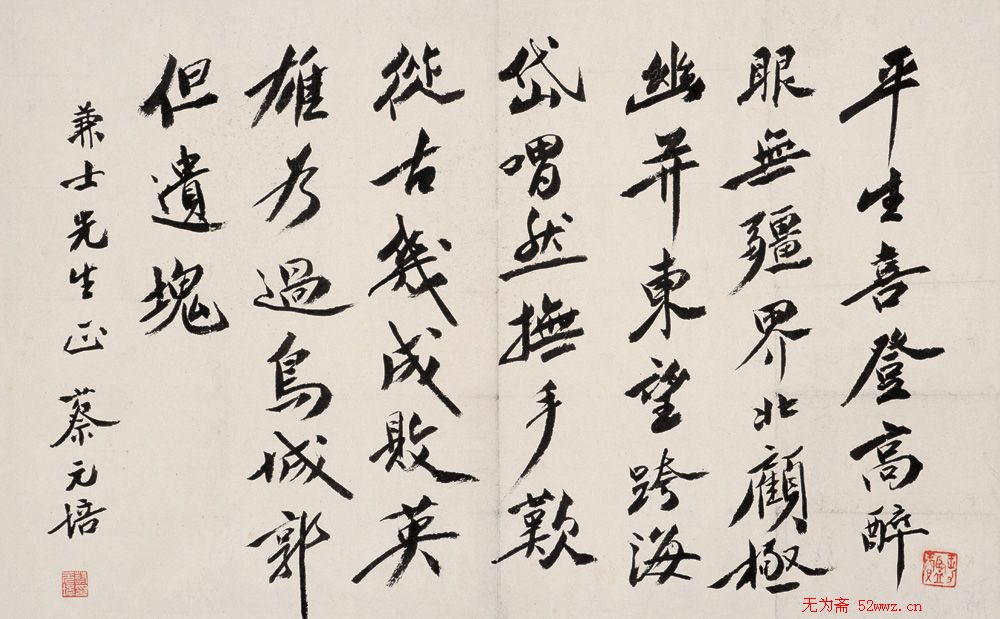 平生喜登高醉
眼無疆界北顧極
幽并東望跨海
岱喟然撫手歎
從古幾成敗英
雄爲過鳥城郭
但遺塊
兼士先生正 蔡元培
无为斋 52wwz.cn